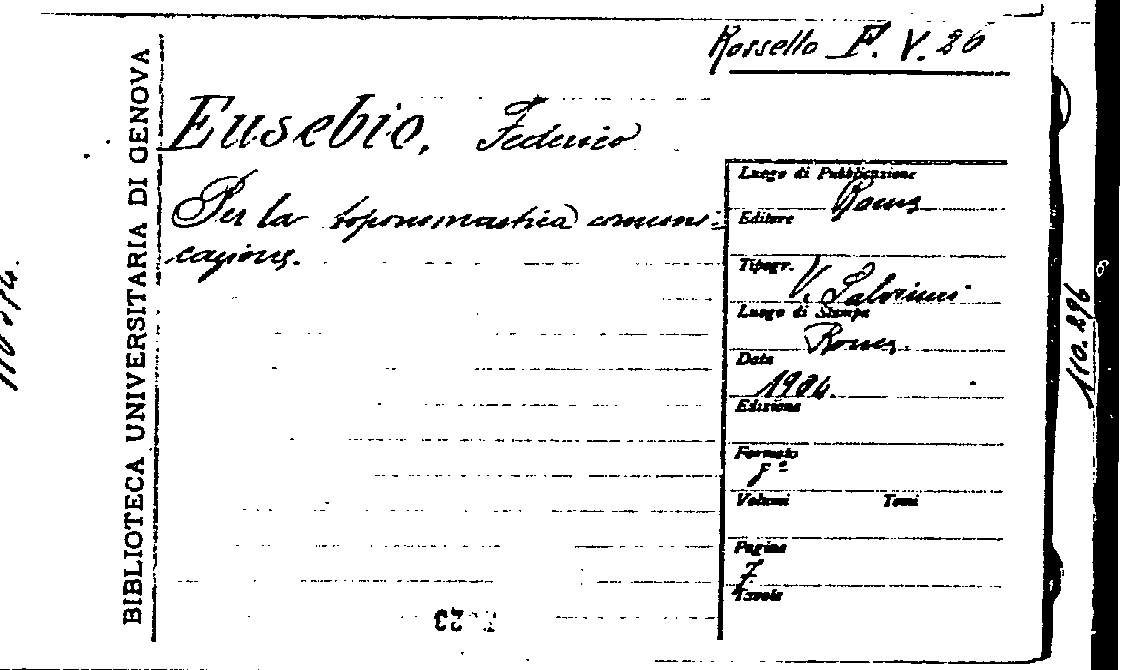 Rossello F. V. 26
BIBLIOTECA UNIVERSITARIA DI GENOVA
Eusebio, Federico
Per la toponomastica comuni-
cazione.
Luogo di Pubblicazione
Roma
Editore
Tipogr.
V. Salviucci
Luogo di Stampa
Roma
Data
1904.
Edizione
Formato
8º
Volumi Tomi
Pagine
7
Tavole
110.296